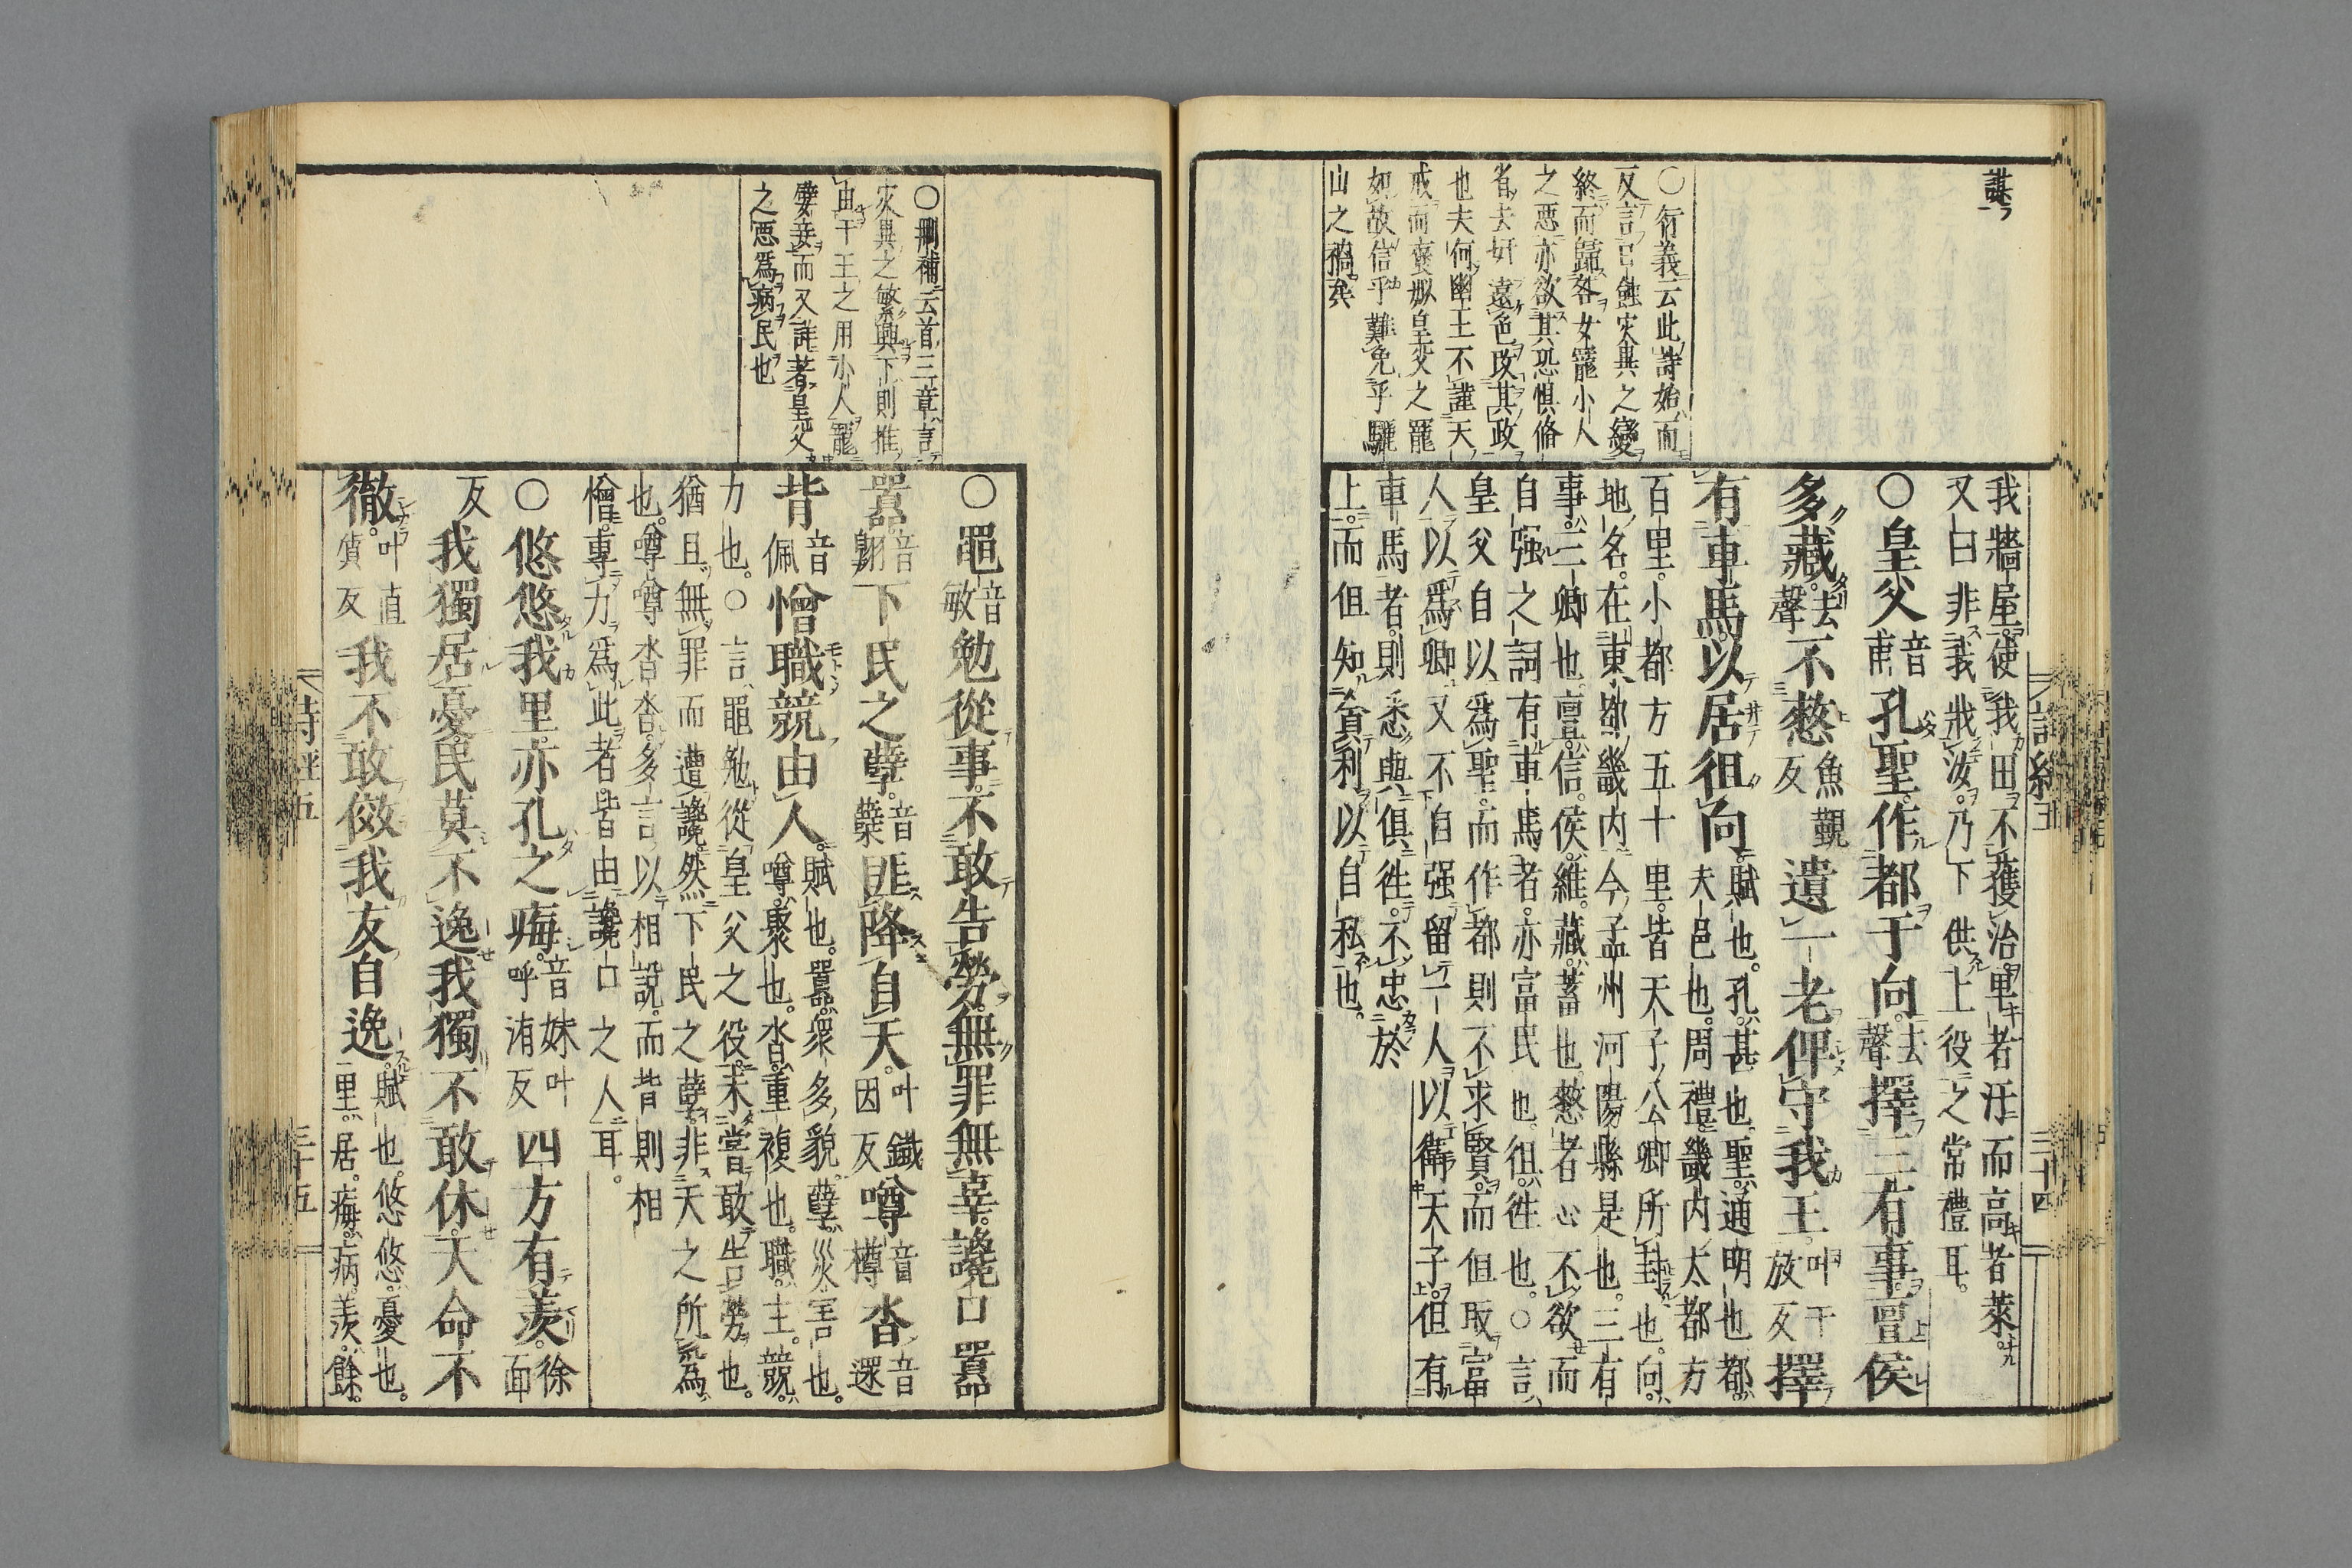 謀ヲ
○衍義云此詩始而
反言曰蝕灾異之變
終而歸咎女寵小人
之惡亦欲其恐惧脩
省去奸遠色改其政
也夫何幽王不謹天
戒而褒姒皇父之寵
如故信乎難免乎驪
山之禍矣
我牆屋使我田不獲治卑者汙而高者萊
又曰非我戕汝乃下供上役之常禮耳
○皇父音甫孔聖作都于向去聲擇三有事亶侯
多藏去聲不憖魚覲反遺一老俾守我王叶于放反擇
有車馬以居徂向賦也孔甚也聖通明也都
大邑也周禮畿内大都方
百里小都方五十里皆天子公卿所封也向
地名在東都畿内今孟州河陽縣是也三有
事三卿也亶信侯維藏蓄也憖者心不欲而
自强之詞有車馬者亦富民也徂徃也○言
皇父自以爲聖而作都則不求賢而但取富
人以爲卿又不自强留一人以衛天子但有
車馬者則悉與俱徃不忠於
上而但知貪利以自私也
詩經五
三十四
○刪補云首三章言
灾異之繁興下則推
由于王之用小人寵
嬖妾而又詳著皇父
之惡爲病民也
○黽音敏勉從事不敢告勞無罪無辜讒口囂
囂音翺下民之孽音蘖匪降自天叶鐵因反噂音樽沓音遝
背音佩憎職競由人賦也囂衆多貌孽災害也
噂聚也沓重複也職主競
力也○言黽勉從皇父之役未嘗敢告勞也
猶且無罪而遭讒然下民之孽非天之所爲
也噂噂沓沓多言以相說而背則相
憎專力爲此者皆由讒口之人耳
○悠悠我里亦孔之痗音妹叶呼洧反四方有羨徐面
反我獨居憂民莫不逸我獨不敢休天命不
徹叶直質反我不敢傚我友自逸賦也悠悠憂也
里居痗病羨餘
詩經五
三十五